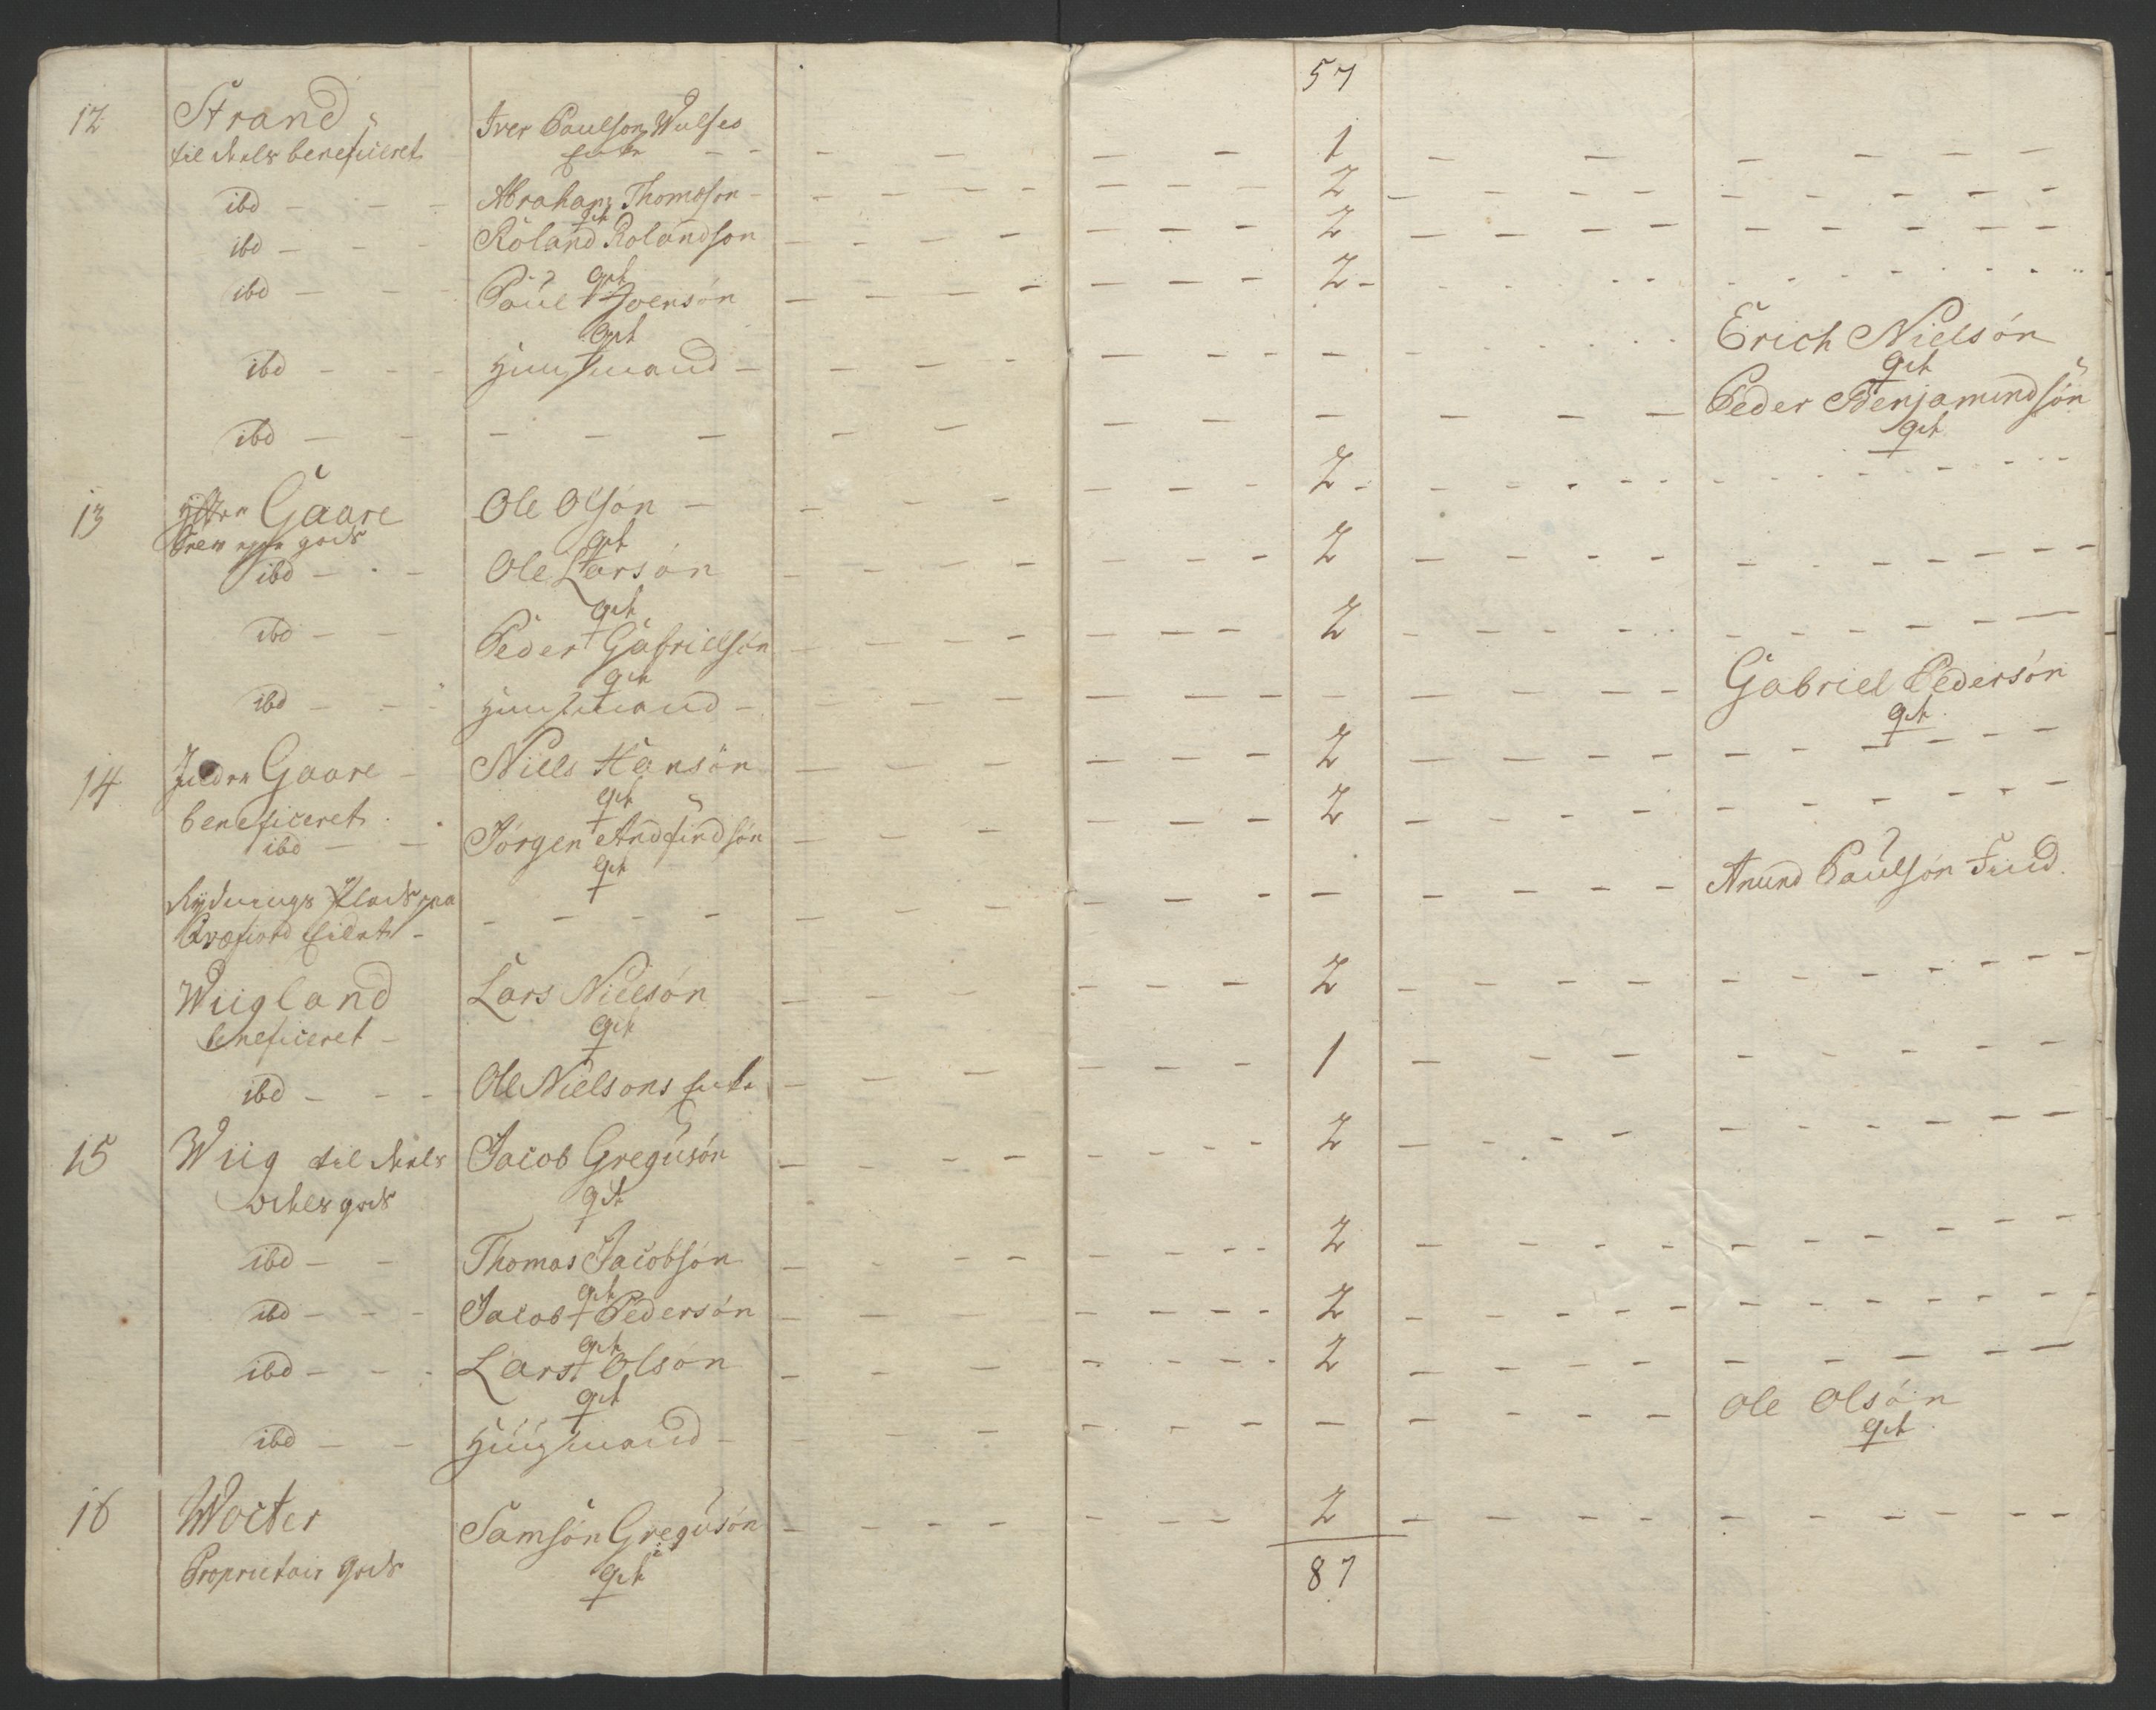 57
12 Strand Iver Paulson Wulfes
til beneficeret Enke - - - - - - 1 - - - - - -
ibd - - - Abraham Thomasson - - - - - - - - 2 - - - - - - - - -
gift
ibd - - - Roland Rolandson - - - - - - - 2 - - - - - - - - -
gift
ibd - - - Paul Joensøn - - - - - - - 2 - - - - - - - - -
gift
ibd - - - Huusmand - - - - - - - - - - - Erich Nielsøn
gift
ibd - - - - - - - - - - - - - - Peder Benjamindsøn
gift
13 Gaare Ole Olsøn - - - - - - - 2 - - - - - - - - -
gods gift
ibd - - - Ole Larsøn - - - - - - - 2 - - - - - - - - -
gift
ibd - - Peder Gabrielsøn - - - - - - 2 - - - - - - - - -
gift
ibd - - - Huusmand - - - - - - - - - - - Gabriel Pedersøn
gift
14 Gaare - Niels Hansøn - - - - - - 2 - - - - - - - - -
beneficeret gift
ibd - - Jørgen Andfindsøn - - - - - - 2 - - - - - - - - -
gift
Rydnings Plads paa - - - - - - - - - - - - Anund Paulsøn Find
-
Wiigland Lars Nielsøn - - - - - - 2 - - - - - - - - -
beneficeret - gift
ibd - - - Ole Nielsøns Enke - - - - - - 1 - - - - - - - - -
15 Wiig til Jacob Gregusøn - - - - - - - 2 - - - - - - - - -
gods gift
ibd - - Thomas Jacobsøn - - - - - - - 2 - - - - - - - - -
gift
ibd - - - Jacob Pedersøn - - - - - - - 2 - - - - - - - - -
gift
ibd - - - Lars Olsøn - - - - - - - 2 - - - - - - - - -
gift
ibd - - Huusmand - - - - - - - - - - - Ole Olsøn
gift
16 Wocter Samsøn Gregusøn - - - - - - - 2 - - - - - - - - -
Proprietair Gods gift 87